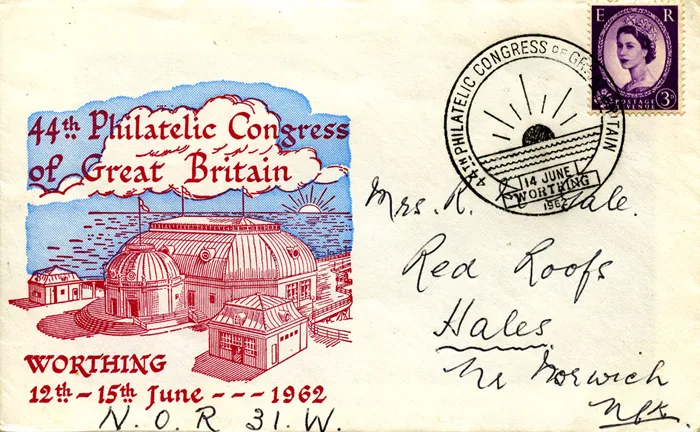 44th Philatelic Congress
of Great Britain
WORTHING
12th - 15th June --- 1962
N.O.R 31.W.
44TH PHILATELIC CONGRESS OF GREAT BRITAIN
14 JUNE
WORTHING
1962
E R
POSTAGE
REVENUE
3D
Mrs. R.
Red Roofs
Hales
Nr Norwich
Nfk.